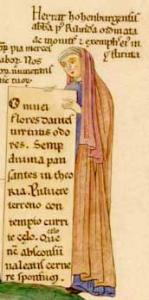 Herrat hohenburgensis
abb̄ p̄ Rilindā ordinata
ac monitis & exemplis ei' in
stituta
pia merces
labor. Nos
O nivei
flores dantes
virtutis odo
res. Semp
divina pau
santes in theo
ria. Pulvere
terreno con
tempto curri
te celo. Que
nc̄ absconsū
valeatis cerne
re sponsum.